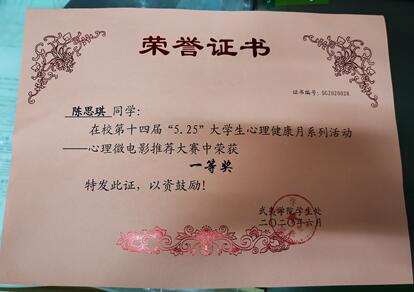 荣誉证书
证书编号：SG2020028
陈思琪 同学：
在校第十四届“5.25”大学生心理健康月系列活动
——心理微电影推荐大赛中荣获
一等奖
特发此证，以资鼓励！
学生处
二〇二〇年六月